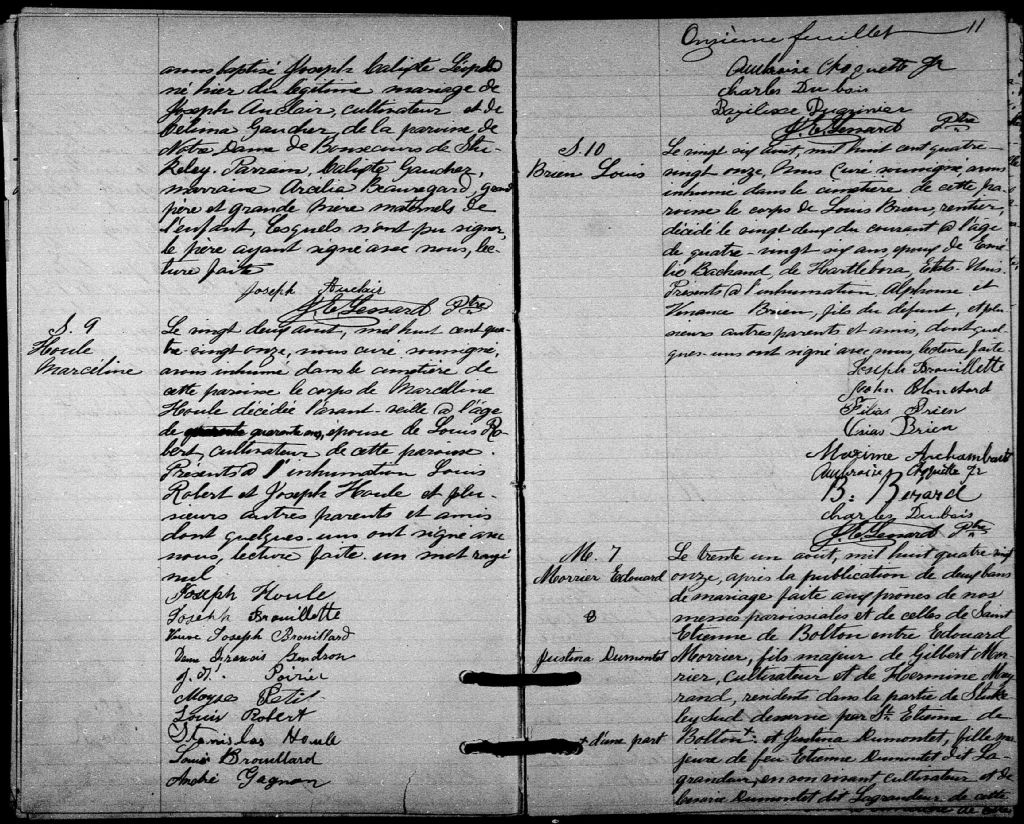 avons baptisé Joseph Calixte Léopold
né hier du légitime mariage de
Joseph Auclair, cultivateur et de
Délima Gaucher, de la paroisse de
Notre Dame de Bonsecours de Stu-
keley. Parrain, Calixte Gaucher,
marraine Arcélia Beauregard, grand
père et grande Mère maternels de
l'enfant, lesquels n'ont pu signer,
le père ayant signé avec nous, lec-
ture faite
Joseph Auclair
J. E. Lessard Ptre
S. 9
Houle
Marceline
Le vingt deux août, mil huit cent qua-
tre-vingt onze, nous curé soussigné,
avons inhumé dans le cimetière de
cette paroisse le corps de Marcelline
Houle décédée l'avant-veille à l'âge
de quarante ans, épouse de Louis Ro-
bert, cultivateur de cette paroisse.
Présents à l'inhumation Louis
Robert et Joseph Houle et plu-
sieurs autres parents et amis
dont quelques-uns ont signé avec
nous, lecture faite un mot rayé
nul
Joseph Houle
Joseph Brouillette
Veuve Joseph Brouillard
Dame Francois Gendron
J. Poirier
Moyse Petit
Louis Robert
Stanislas Houle
Louis Brouillard
André Gagnon
Onzième feuillet 11
Ambroise Choquette Jr
Charles Dubois
Basilisse
J. E. Lessard Ptre
S. 10
Brien Louis
Le vingt six août, mil huit cent quatre-
vingt onze, Nous Curé soussigné, avons
inhumé dans le cimetière de cette pa-
roisse le corps de Louis Brien, rentier,
décédé le vingt deux du courant à l'âge
de quatre-vingt six ans, epoux de Emé-
lie Bachand, de Etats-Unis.
Présents à l'inhumation Alphonse et
Venance Brien, fils du défunt, et plu-
sieurs autres parents et amis, dont quel-
ques-uns ont signé avec nous, lecture faite.
Joseph Brouillette
John Blanchard
Brien
Urias Brien
Maxime Archambault
Ambroise Choquette Jr
B. Berard
Charles Dubois
J. E. Lessard Ptre
M. 7
Morrier Edouard
&
Justina Dumontet
+ d'une part
Le trente un août, mil huit quatre vingt
onze, après la publication de deux bans
de mariage faite aux prones de nos
messes paroissiales et de celles de Saint
Etienne de Bolton entre Edouard
Morrier, fils majeur de Gilbert Mor-
rier, Cultivateur et de Hermine May-
rand, residents dans la partie de Stuke-
ley Sud desservie par St. Etienne de
Bolton + et Justina Dumontet, fille ma-
jeure de feu Etienne Dumontet dit La-
grandeur, en son vivant, cultivateur et de
Césarie Dumontet dit Lagrandeur de cette